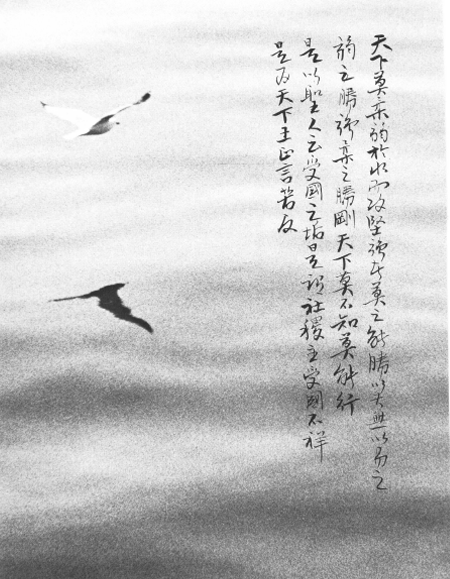 天下莫柔弱於水而攻堅強者莫之能勝以其無以易之
弱之勝強柔之勝剛天下莫不知莫能行
是以聖人云受國之垢是謂社稷主受國不祥
是為天下王正言若反